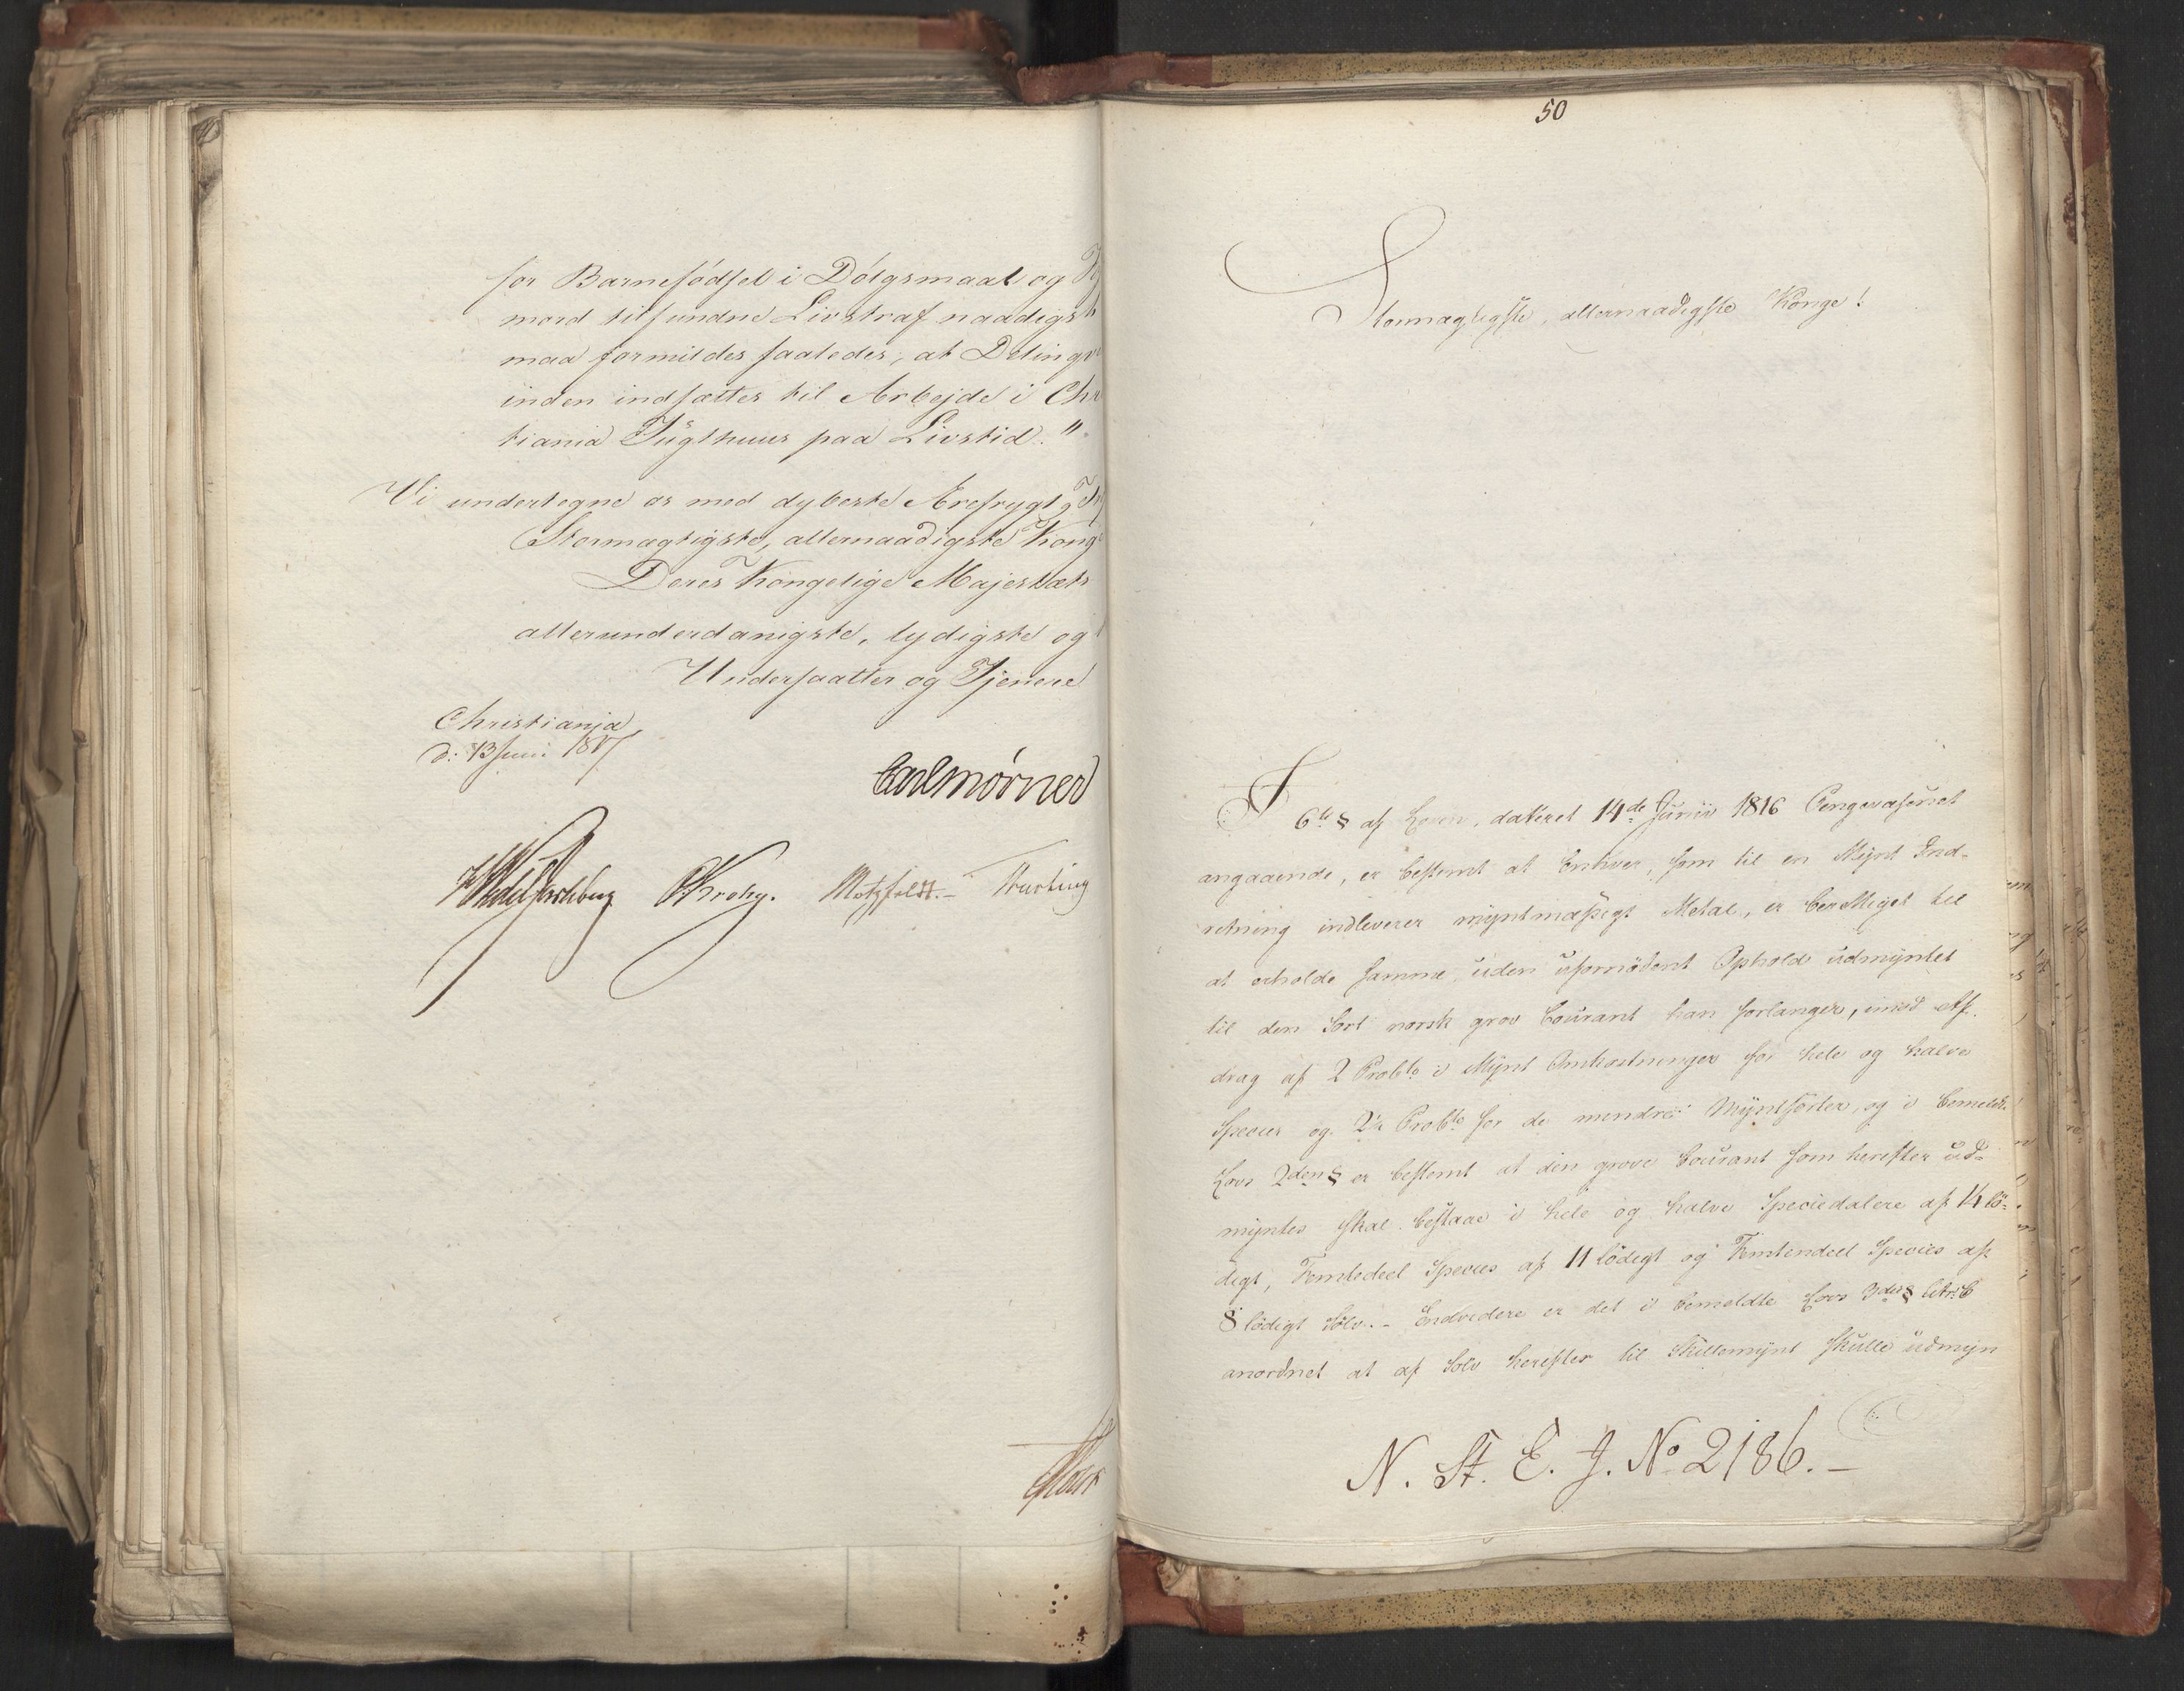 for Barnefødsel i Dølgsmaal og
mord tilfundne Livstraf naadigst
maa formildes saaledes, at Delinqv
inden indsættes til Arbejde i Chr
tiania Tugthuus paa Livstid."
Vi undertegne os med dybeste Ærefrygt,
Stormægtigste, allernaadigste Konge
Deres Kongelige Majestæts
allerunderdanigste, lydigste og
Undersaatter og Tjenere
Christiania
d: 13 Juni 1817
Carl Mörner
Krohg. Motzfeldt.-
50
Stormægtigste, allernaadigste Konge!
I 6te § af Loven, dateret 14de Junii 1816 Pengevæsenet
angaaende, er bestemt at Enhver, som til en Mynt Ind-
retning indleverer myntmæssigt Metal, er berettiget til
at erholde samme uden ufornødent Ophold udmyntet
til den Sort norsk grov Courant han forlanger, imod Af-
drag af 2 Procto i Mynt Omkostninger for hele og halve
Species og 2½ Procto for de mindre Myntsorter, og i bemeldte
Lovs 2den § er bestemt at den grove Courant som herefter ud-
myntes skal bestaae i hele og halve Speciedalere af 14 lö-
digt, Femtedeel Species af 11 lödigt og Femtendeel Species af
8 lödigt Sölv.- Endvidere er det i bemeldte Lovs 3die § Litr: C
anordnet at af Sölv herefter til Skillemynt skulle udmyn
N. St. E. J. No 2186.-